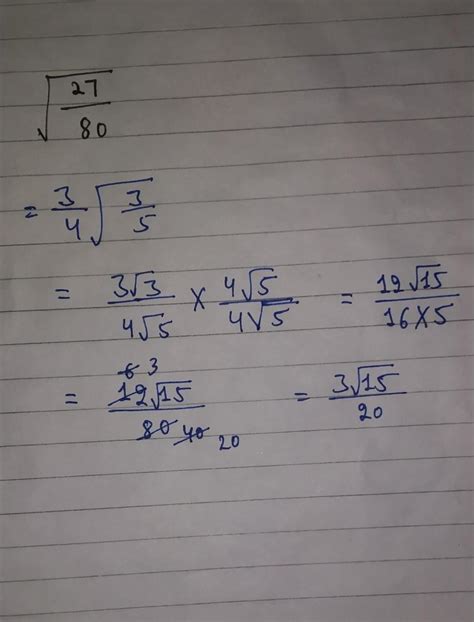 √(27/80)
= 3/4 √(3/5)
= 3√3/4√5 × 4√5/4√5 = 12√15/16×5
6 3
= 12√15/80 40 20 = 3√15/20